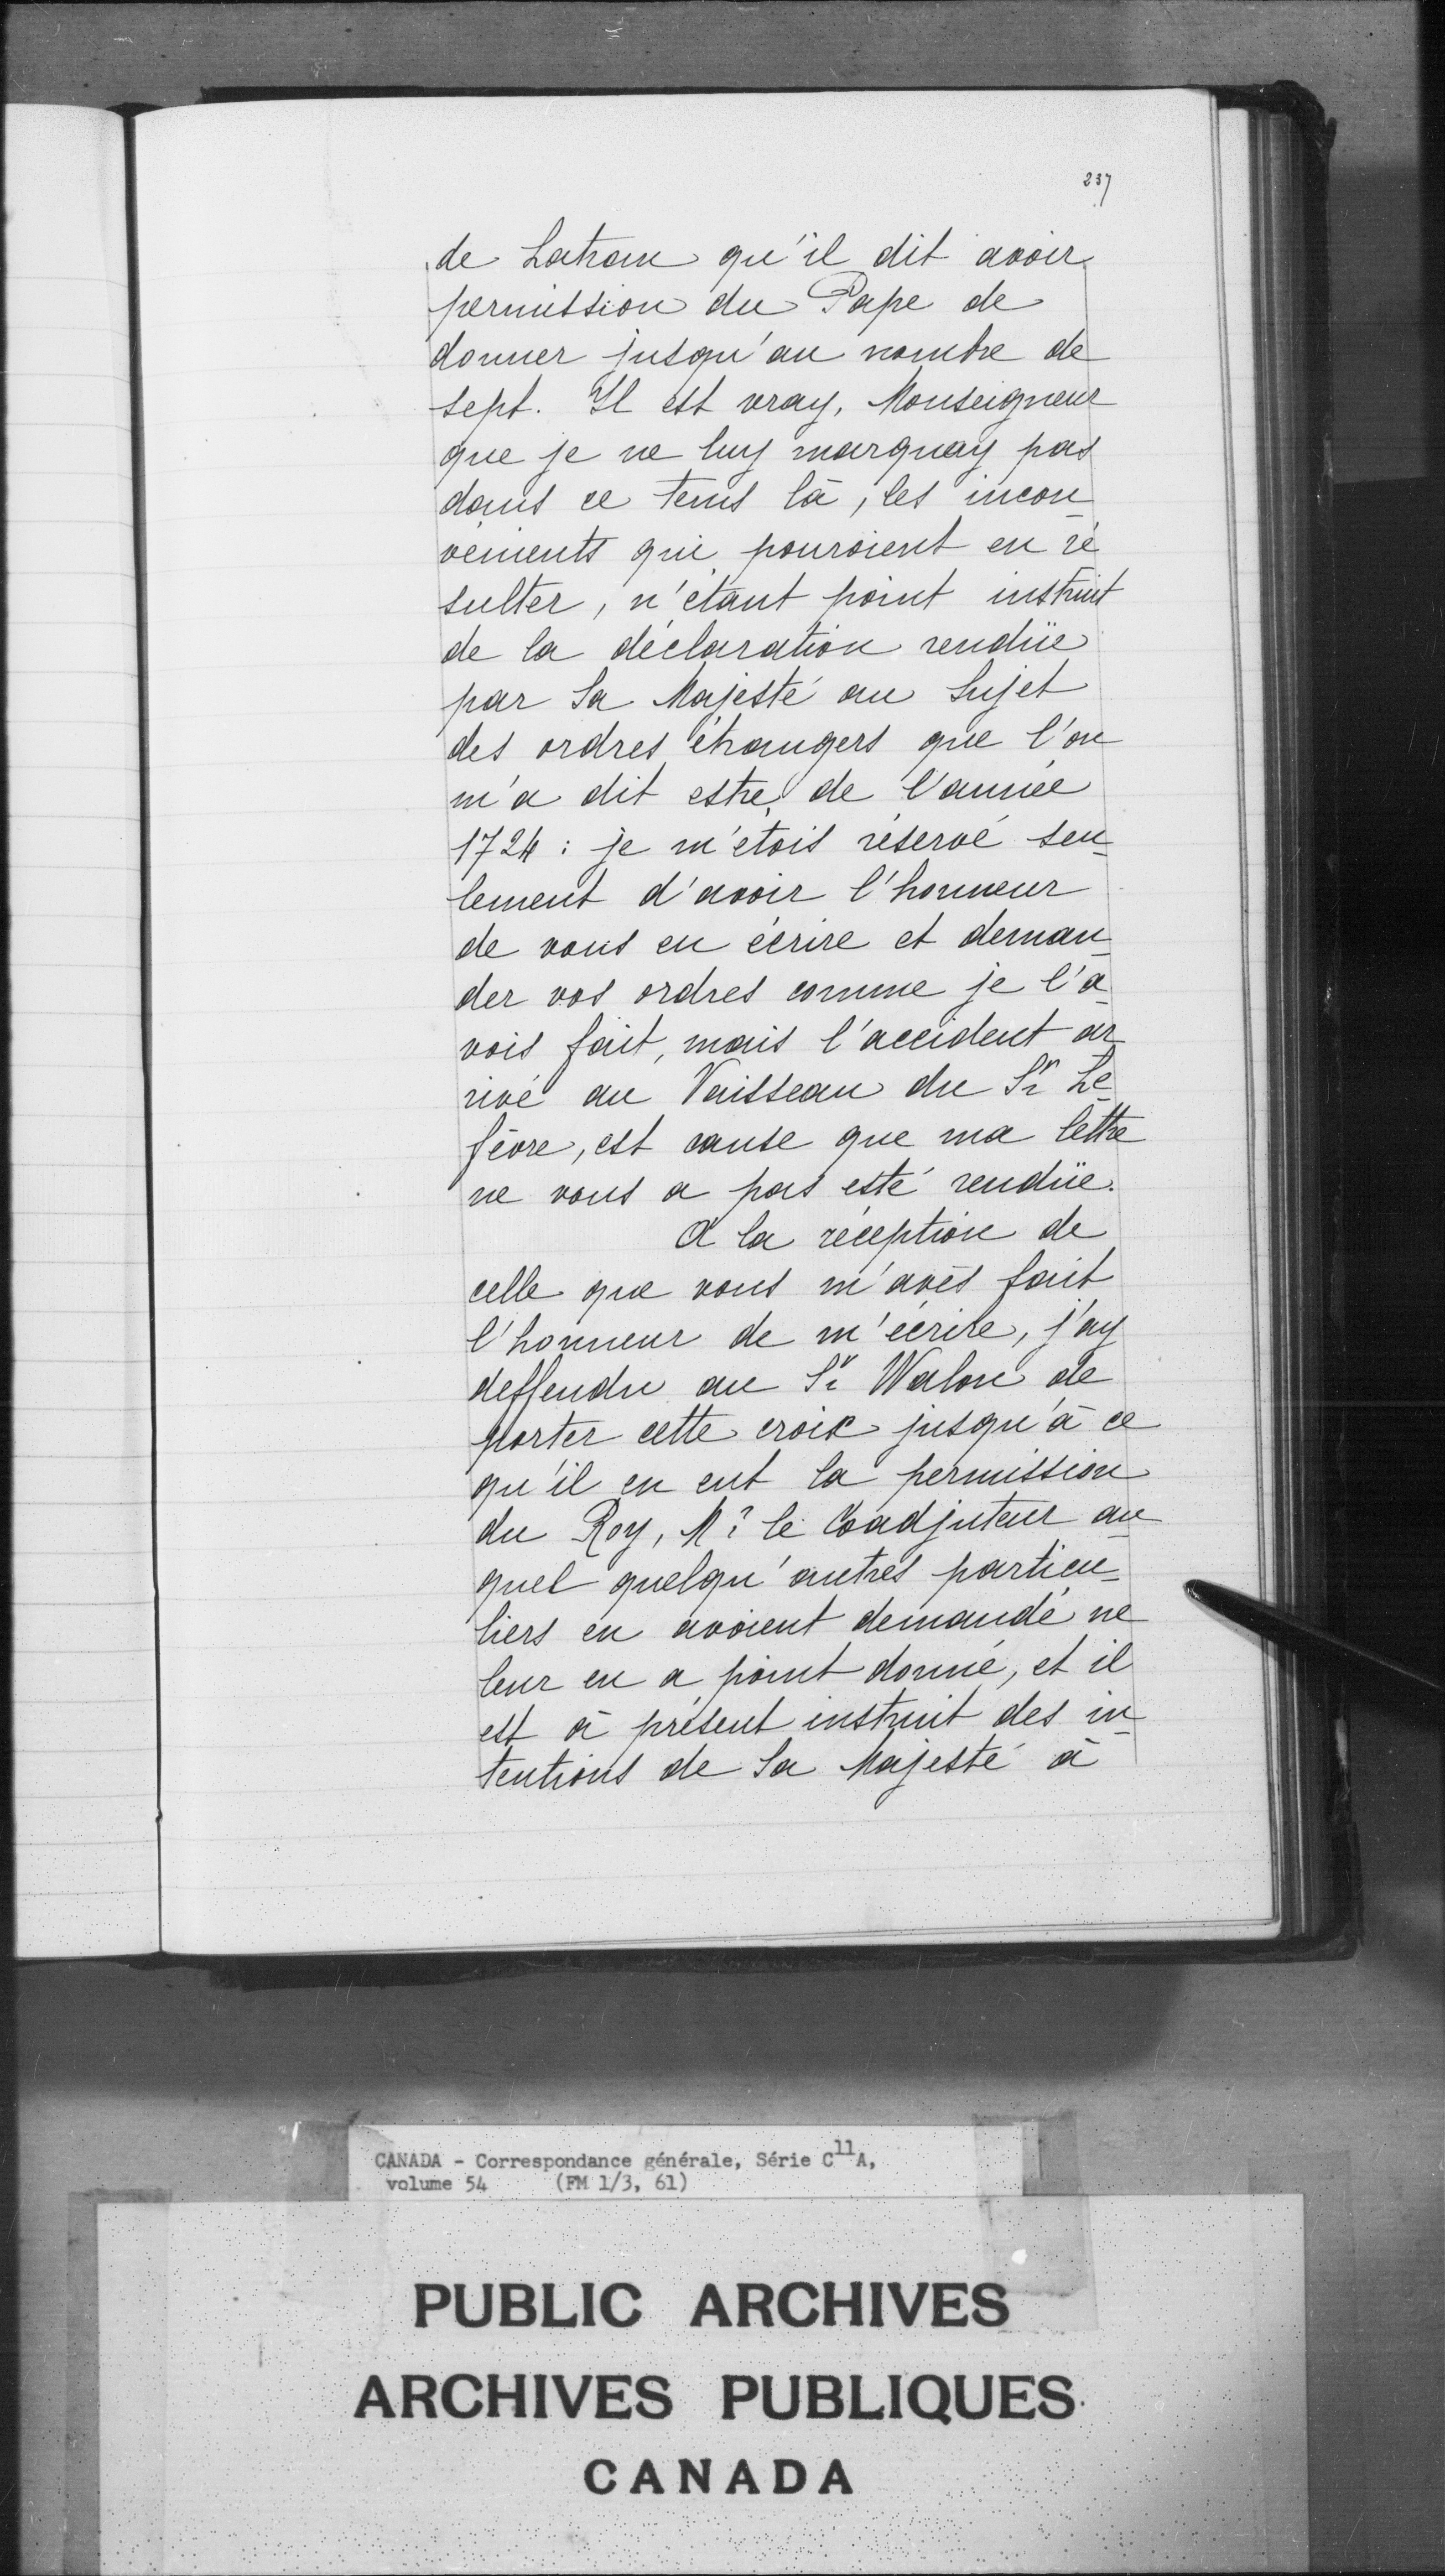 237
de Latran qu'il dit avoir
permission du Pape de
donner jusqu'au nombre de
sept. Il est vray, Monseigneur
que je ne luy marquay pas
dans ce tems là, les incon-
vénients qui pouroient en ré
sulter, n'étant point instruit
de la déclaration rendüe
par Sa Majesté au Sujet
des ordres étrangers que l'on
m'a dit estre de l'année
1724 : je m'étois réservé seu-
lement d'avoir l'honneur
de vous en écrire et deman-
der vos ordres comme je l'a-
vois fait, mais l'accident ar-
rivé au Vaisseau du Sr. Le-
fèvre, est cause que ma lettre
ne vous a pas esté rendüe.
A la réception de
celle que vous m'avés fait
l'honneur de m'écrire, j'ay
deffendu au Sr. Walon de
porter cette croix jusqu'à ce
qu'il en eut la permission
du Roy, Mr. le Coadjuteur au-
quel quelqu'autres particu-
liers en avoient demandé ne
leur en a point donné, et il
est à présent instruit des in-
tentions de Sa Majesté à
CANADA - Correspondance générale, Série C11A,
volume 54 (FM 1/3, 61)
PUBLIC ARCHIVES
ARCHIVES PUBLIQUES
CANADA